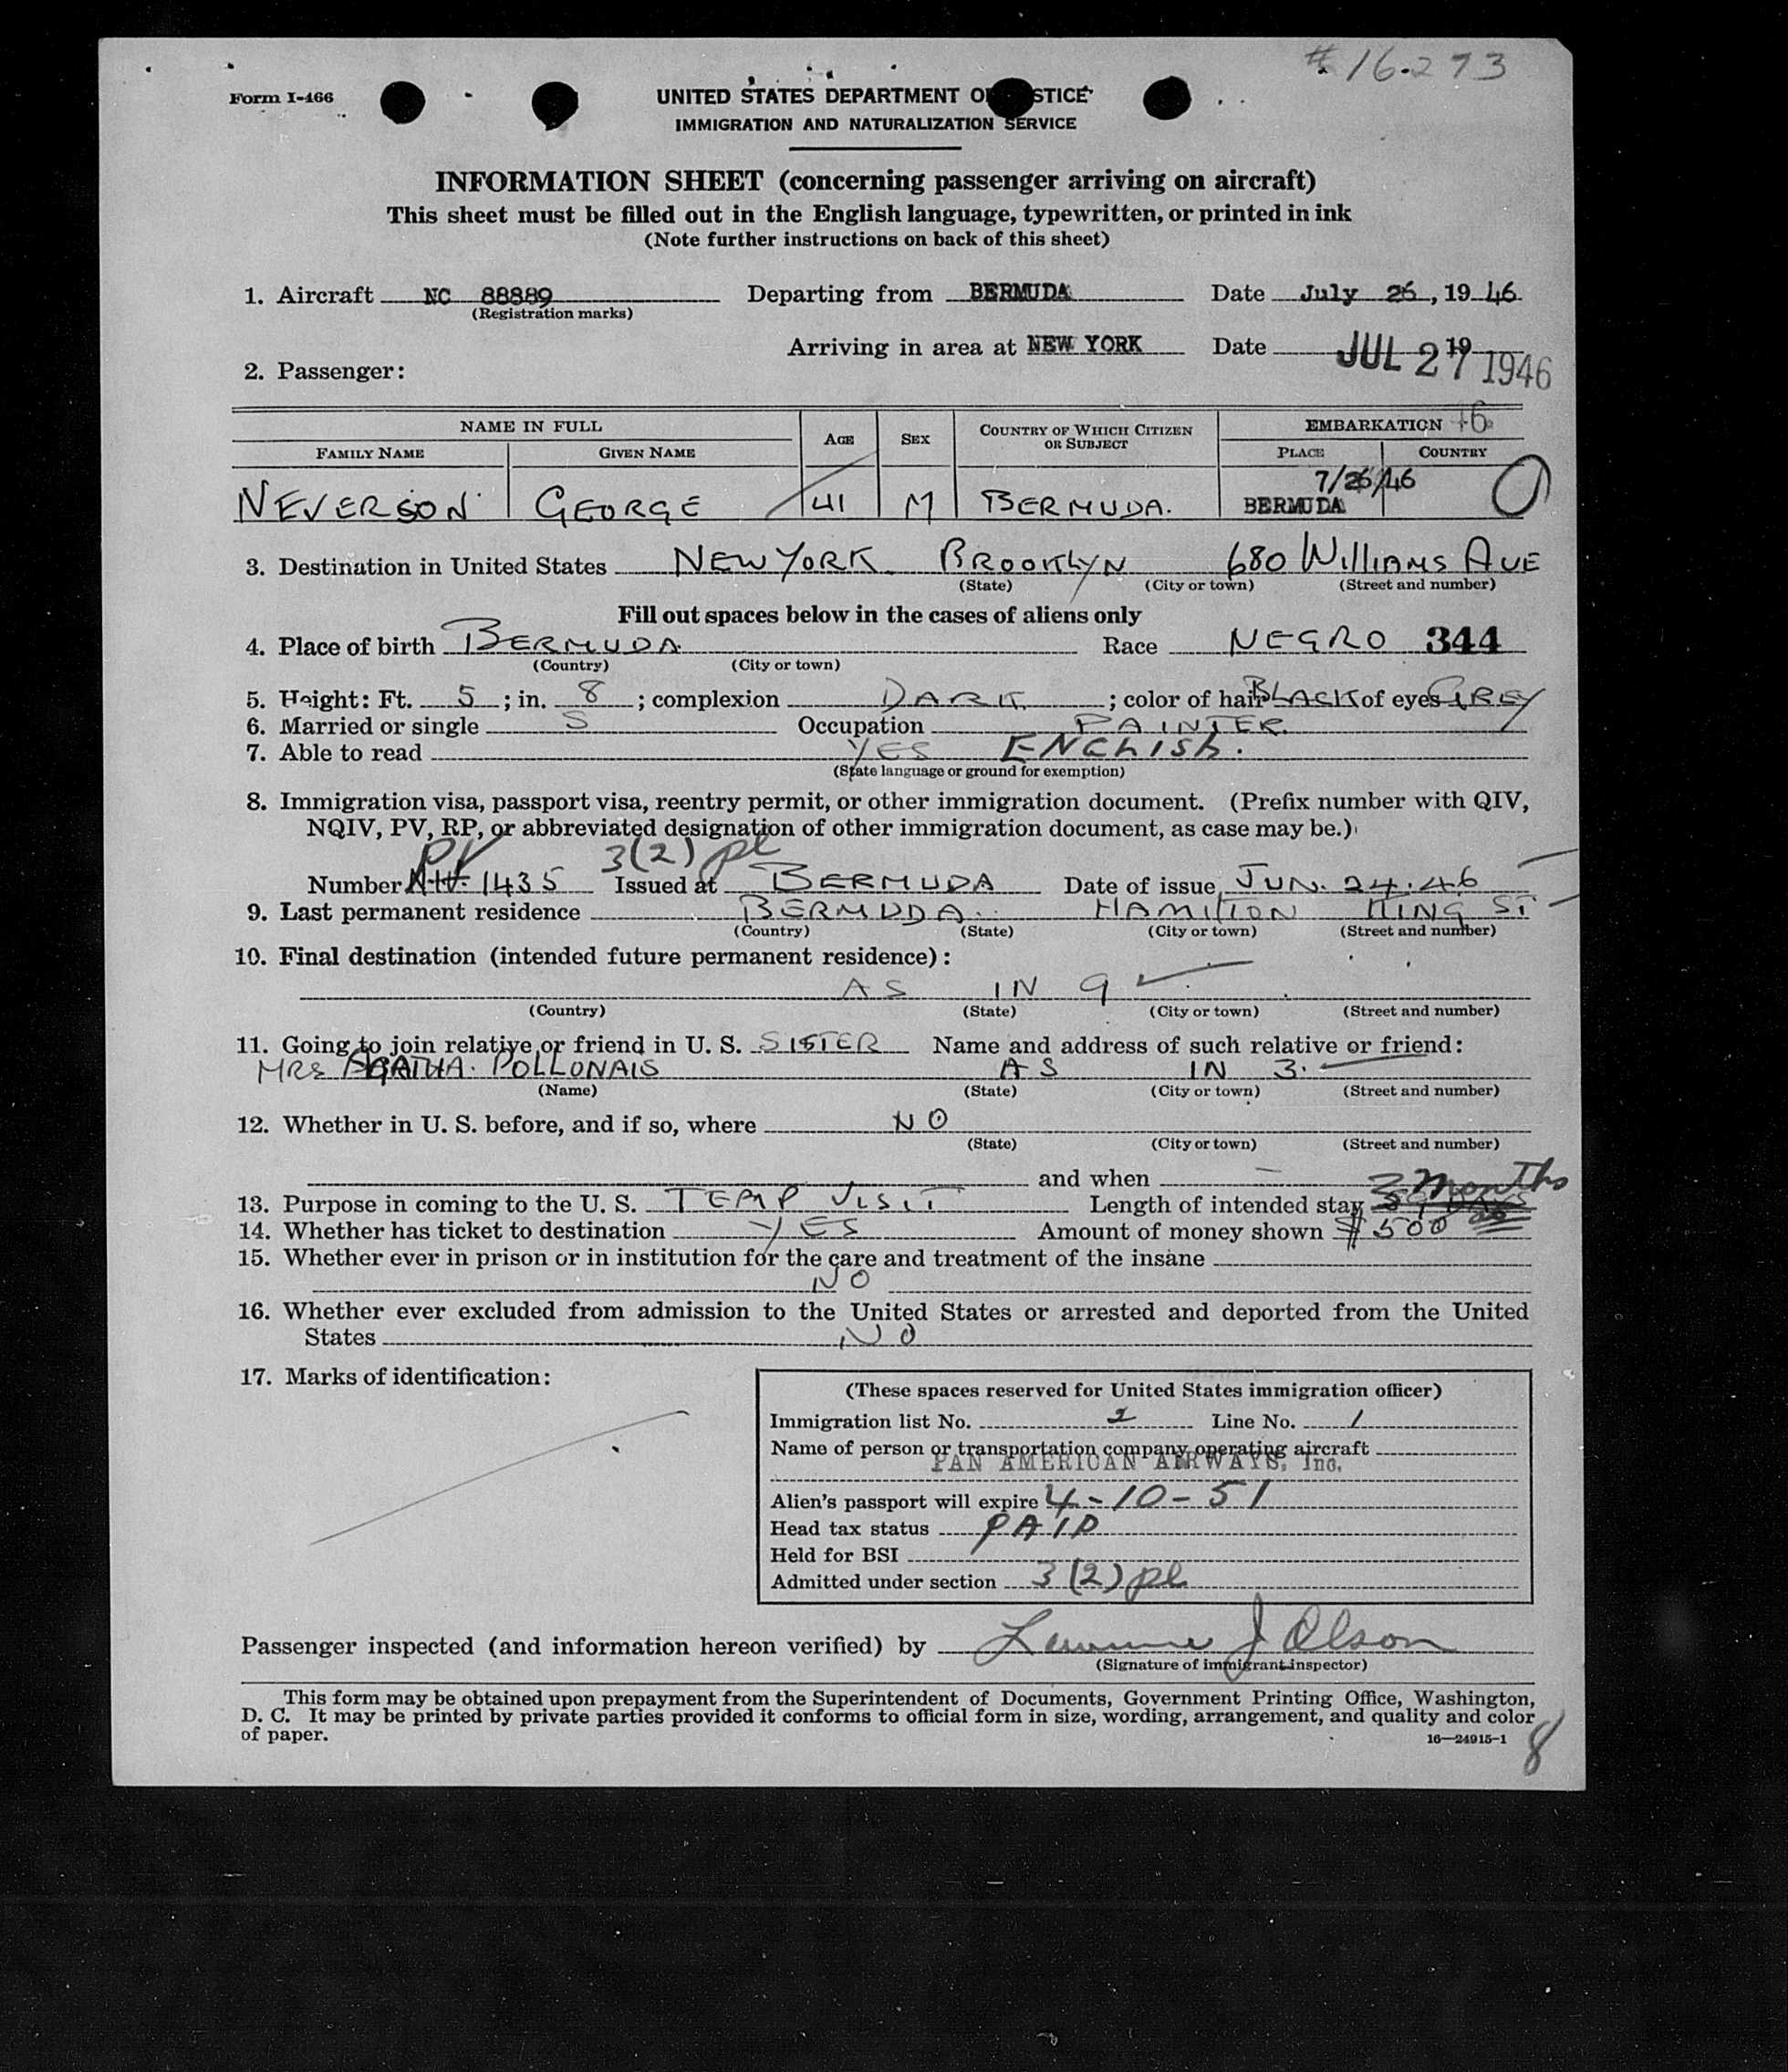 # 16-273
Form I-466
UNITED STATES DEPARTMENT O STICE
IMMIGRATION AND NATURALIZATION SERVICE
INFORMATION SHEET (concerning passenger arriving on aircraft)
This sheet must be filled out in the English language, typewritten, or printed in ink
(Note further instructions on back of this sheet)
1. Aircraft NC 88889 Departing from BERMUDA Date July 26, 19 46
(Registration marks)
Arriving in area at NEW YORK Date 19
JUL 27 1946
2. Passenger:
NAME IN FULL AGE SEX COUNTRY OF WHICH CITIZEN OR SUBJECT EMBARKATION
FAMILY NAME GIVEN NAME PLACE COUNTRY
7/26/46
NEVERSON GEORGE 41 M BERMUDA. BERMUDA
3. Destination in United States NEW YORK BROOKLYN 680 WILLIAMS AVE
(State) (City or town) (Street and number)
Fill out spaces below in the cases of aliens only
4. Place of birth BERMUDA Race NEGRO 344
(Country) (City or town)
5. Height: Ft. 5; in. 8; complexion DARK; color of hair BLACK of eyes GREY
6. Married or single S Occupation PAINTER.
7. Able to read YES ENGLISH.
(State language or ground for exemption)
8. Immigration visa, passport visa, reentry permit, or other immigration document. (Prefix number with QIV,
NQIV, PV, RP, or abbreviated designation of other immigration document, as case may be.)
PV 3(2) pl
Number 1435 Issued at BERMUDA Date of issue JUN. 24.46
9. Last permanent residence BERMUDA. HAMILTON KING ST
(Country) (State) (City or town) (Street and number)
10. Final destination (intended future permanent residence):
AS IN 9
(Country) (State) (City or town) (Street and number)
11. Going to join relative or friend in U. S. SISTER Name and address of such relative or friend:
MRS AGATHA. POLLONAIS AS IN 3.
(Name) (State) (City or town) (Street and number)
12. Whether in U. S. before, and if so, where NO
(State) (City or town) (Street and number)
and when —
3 Months
13. Purpose in coming to the U. S. TEMP VISIT Length of intended stay
14. Whether has ticket to destination YES Amount of money shown $500
15. Whether ever in prison or in institution for the care and treatment of the insane
NO
16. Whether ever excluded from admission to the United States or arrested and deported from the United
States NO
17. Marks of identification:
(These spaces reserved for United States immigration officer)
Immigration list No. 2 Line No. 1
Name of person or transportation company operating aircraft
PAN AMERICAN AIRWAYS, Inc.
Alien's passport will expire 4-10-51
Head tax status PAID
Held for BSI
Admitted under section 3(2) pl
Passenger inspected (and information hereon verified) by J Olson
(Signature of immigrant inspector)
This form may be obtained upon prepayment from the Superintendent of Documents, Government Printing Office, Washington,
D. C. It may be printed by private parties provided it conforms to official form in size, wording, arrangement, and quality and color
of paper.
16—24915-1
8